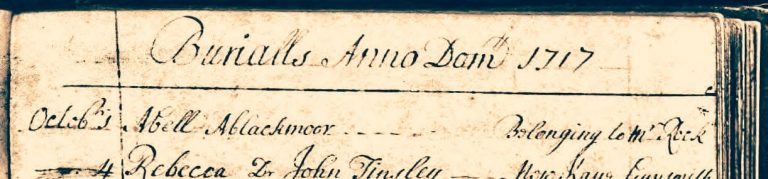 Burialls Anno Domi 1717
Octobr 1 Abell Ablackmoor - - - - Belonging to Mr Rock
4 Rebecca Dr John Tinsley — New